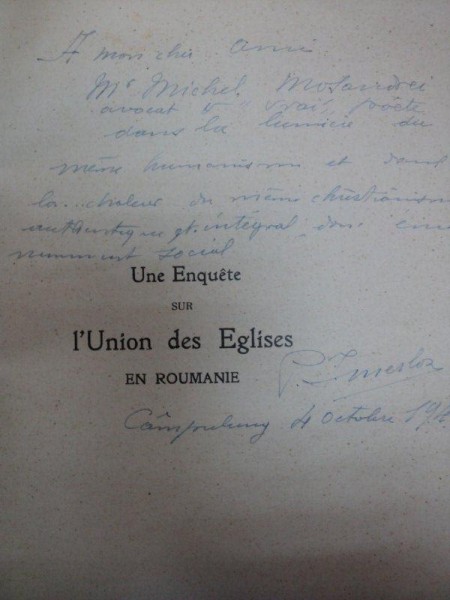 A mon cher ami
Mr Michel Mosandrei
avocat et "vrai" poète
dans la lumière du
même humanisme et dans
la chaleur du même christianisme
authentique et intégral donc émi
nemment social
Une Enquête
SUR
l'Union des Eglises
EN ROUMANIE
Câmpulung 4 Octobre